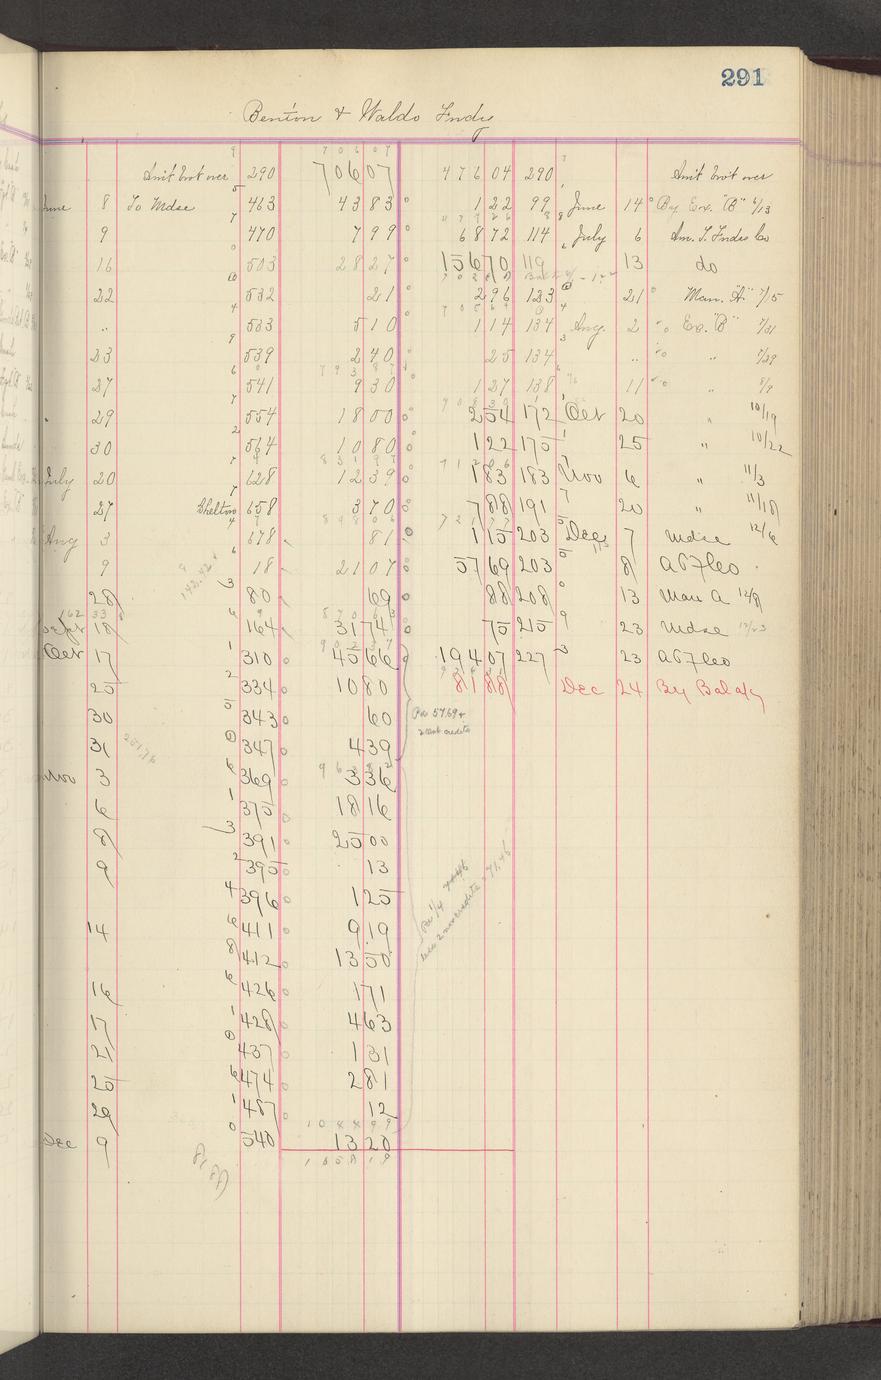 291
Benton & Waldo Fndy
Amt brot over 290 706 07 476 04 290 Amt brot over
June 8 To Mdse 463 43 83 1 22 99 June 14 By Ex. "B" 6/13
9 470 7 99 68 72 114 July 6 Am. T. Fndrs Co
16 503 28 27 156 70 119 13 do
22 532 21 2 96 123 21 Man. "A" 7/15
" 533 5 10 1 14 134 Aug. 2 " Ex. "B" 7/31
23 539 2 40 25 134 " " " 7/29
27 541 9 30 1 27 138 11 " " 8/9
29 554 18 00 2 54 172 Oct 20 " 10/19
30 564 10 80 1 22 175 25 " 10/22
July 20 628 12 39 1 83 183 Nov 6 " 11/3
27 Shelton 658 3 70 7 88 191 20 " 11/18
Aug 3 678 81 1 15 203 Dec 7 Mdse 12/6
9 18 21 07 57 69 203 8 A T F Co
28 80 69 88 208 13 Man A 12/8
Sept 18 164 31 74 75 215 23 Mdse 12/23
Oct 17 310 45 66 194 07 227 23 A T F Co
25 334 10 80 81 88 Dec 24 By Bal a/c
30 343 60 Pd 57.69 &
31 347 4 39 2 last credits
Nov 3 369 3 36
6 375 18 16
8 391 25 00
9 395 13
396 1 25
14 411 9 19 Pd 1/4
412 13 50 less 2 nov credits = 71.46
16 426 1 71
17 428 4 63
21 437 1 31
25 474 2 81
29 487 12
1088 99
Dec 9 540 13 20
81 88